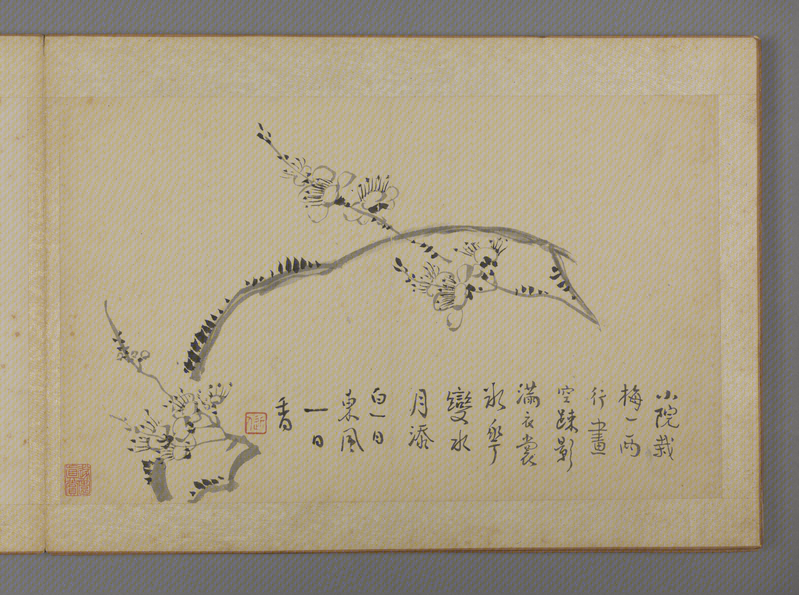 小院栽
梅一兩
行畫
空疎影
滿衣裳
氷華
變水
月添
白一日
東風
一日
香